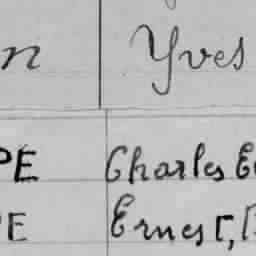 n Yves
PE Charles E
E Ernest,